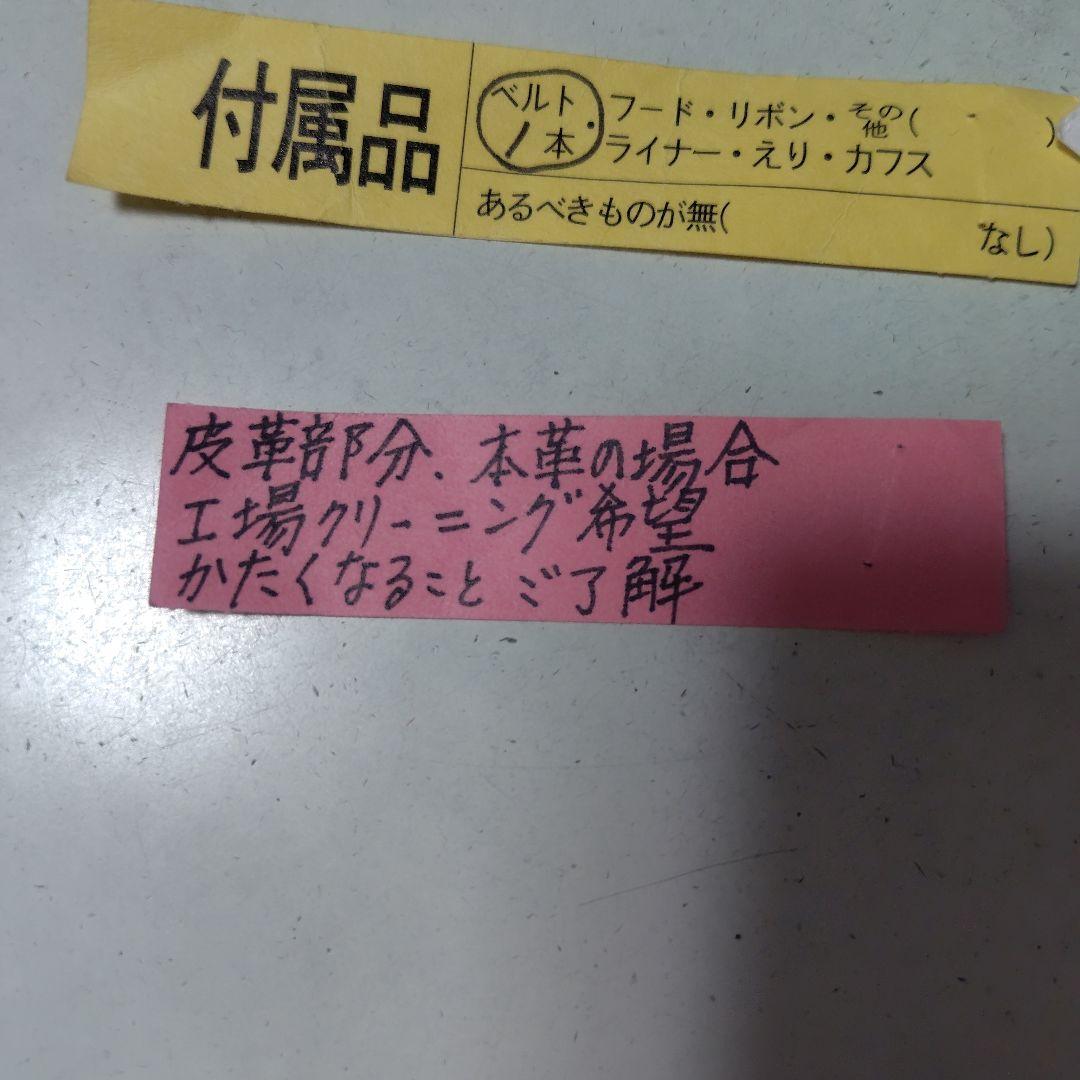 付属品
ベルト・フード・リボン・その他(　)
1本 ライナー・えり・カフス
あるべきものが無(　なし)
皮革部分、本革の場合
工場クリーニング希望
かたくなること ご了解